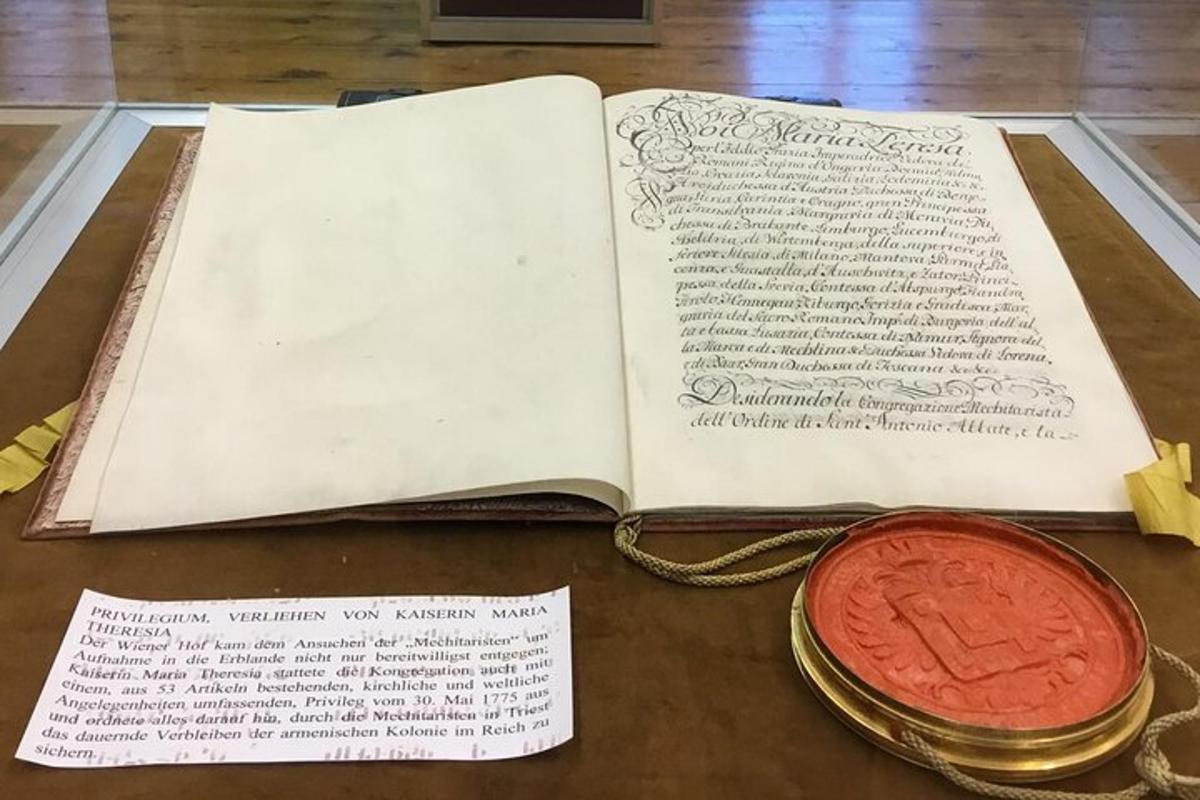 Noi Maria Teresa
per l'Iddio Grazia Imperadrice Vedova de'
Romani Regina d'Ungaria Boemia, Dalma
Croazia Sclavonia Galizia Lodomiria &c &c
Arciduchessa d'Austria Duchessa di Borgo-
Carintia e Cragno, gran Principessa
di Transilvania, Margravia di Moravia, Du
chessa di Brabante, Limburgo, Lucemburgo, di
Gheldria, di Wirtemberga, della superiore, e in
feriore Silesia, di Milano, Mantova, Parma, Pia
cenza, e Guastalla, d'Auschwitz, e Zator, Princi-
pessa della Svevia, Contessa d'Abspurgo, Fiandra
Tirolo, Hennegau, Kiburgo, Gorizia e Gradisca, Mar
gravia del Sacro Romano Imp. di Burgovia, dell'al
ta e bassa Lusazia, Contessa di Namur, Signora del
la Marca e di Mechlina &c Duchessa Vedova di Lorena,
e di Baar, Gran Duchessa di Toscana &c &c
Desiderando la Congregazione Mechitarista
dell'Ordine di Sant'Antonio Abbate, e la
PRIVILEGIUM, VERLIEHEN VON KAISERIN MARIA
THERESIA
Der Wiener Hof kam dem Ansuchen der „Mechitaristen“ um
Aufnahme in die Erblande nicht nur bereitwilligst entgegen;
Kaiserin Maria Theresia stattete die Kongregation auch mit
einem, aus 53 Artikeln bestehenden, kirchliche und weltliche
Angelegenheiten umfassenden, Privileg vom 30. Mai 1775 aus
und ordnete alles darauf hin, durch die Mechitaristen in Triest
das dauernde Verbleiben der armenischen Kolonie im Reich zu
sichern.